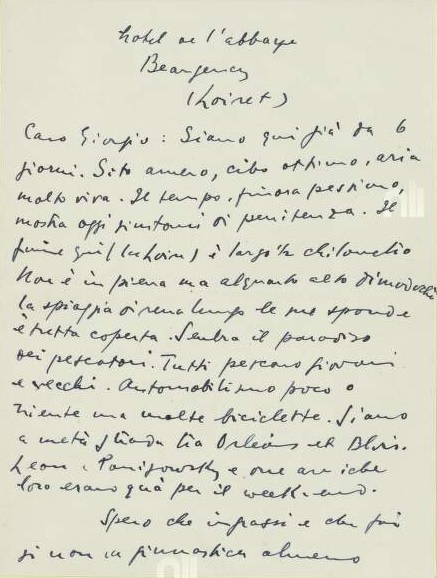 hotel de l'abbaye
Beaugency
(Loiret)
Caro Giorgio: Siamo qui già da 6
giorni. Sito ameno, cibo ottimo, aria
molto viva. Il tempo, finora pessimo,
mostra oggi sintomi di penitenza. Il
fiume qui (la Loire) è largo ½ chilometro
Non è in piena ma alquanto alto dimodochè
la spiaggia di rena lungo le sue sponde
è tutta coperta. Sembra il paradiso
dei pescatori. Tutti pescano giovani
e vecchi. Automobilismo poco o
niente ma molte biciclette. Siamo
a metà strada tra Orléans et Blois.
Leon, Ponisowsky e due amiche
loro erano quà per il week-end.
Spero che ingrassi e che fai
se non la ginnastica almeno